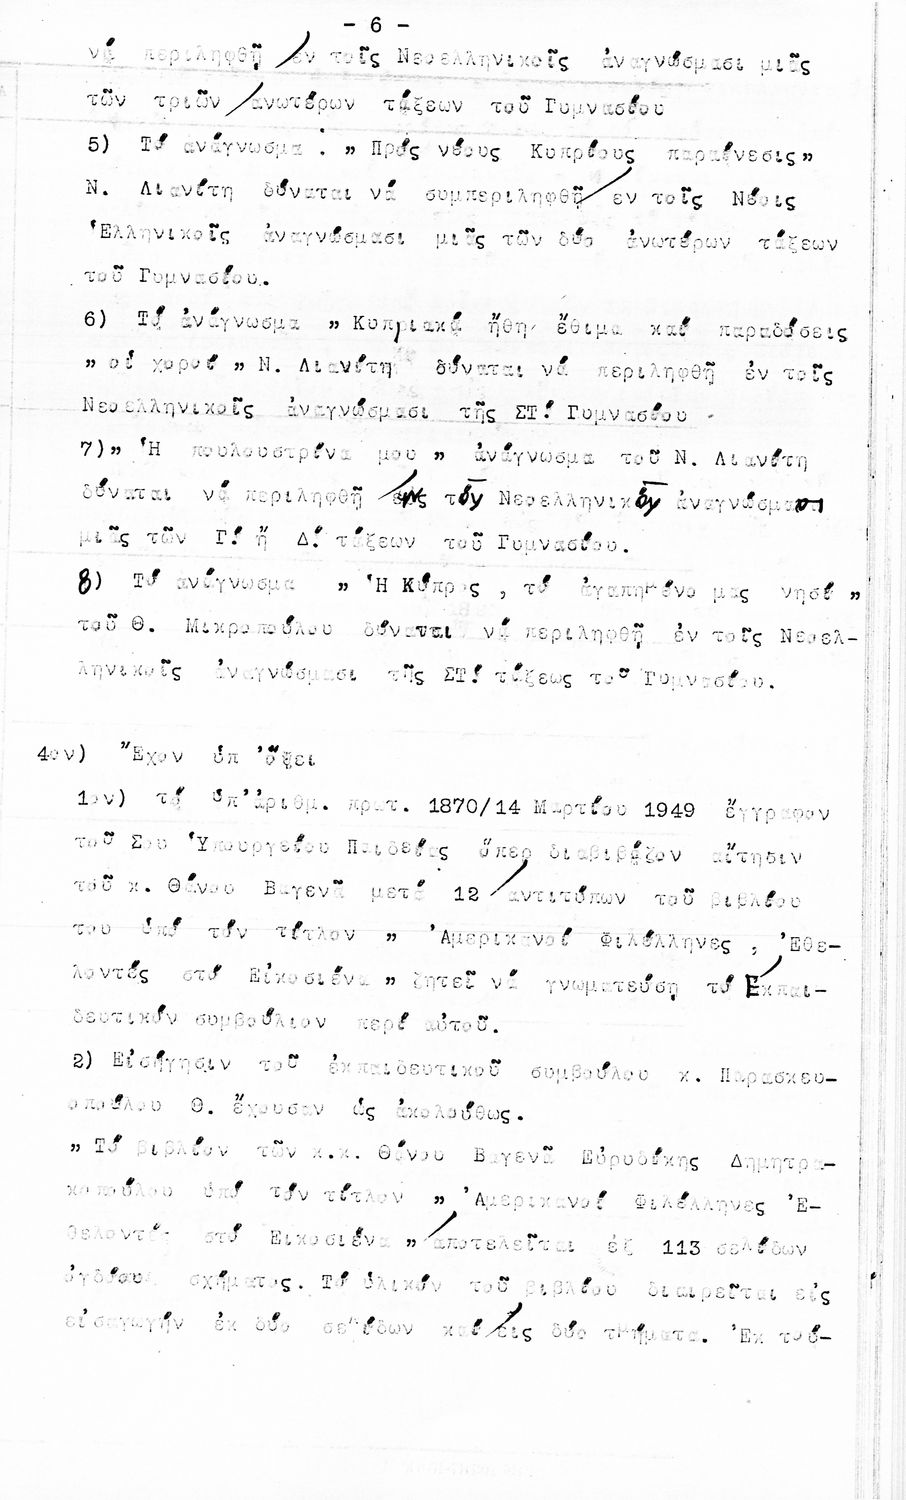 - 6 -
νά περιληφθῇ ἐν τοῖς Νεοελληνικοῖς ἀναγνώσμασι μιᾶς
τῶν τριῶν ἀνωτέρων τάξεων τοῦ Γυμνασίου
5) Τό ἀνάγνωσμα : " Πρός νέους Κυπρίους παραίνεσις"
Ν. Λιανίτη δύναται νά συμπεριληφθῇ ἐν τοῖς Νέοις
Ἑλληνικοῖς ἀναγνώσμασι μιᾶς τῶν δύο ἀνωτέρων τάξεων
τοῦ Γυμνασίου.
6) Τό ἀνάγνωσμα " Κυπριακά ἤθη ἔθιμα καί παραδόσεις
" οἱ χοροί " Ν. Λιανίτη δύναται νά περιληφθῇ ἐν τοῖς
Νεοελληνικοῖς ἀναγνώσμασι τῆς ΣΤ! Γυμνασίου
7)" Ἡ πουλουστρίνα μου " ἀνάγνωσμα τοῦ Ν. Λιανίτη
δύναται νά περιληφθῇ τῶν Νεοελληνικῶν ἀναγνώσμασι
μιᾶς τῶν Γ! ἤ Δ! τάξεων τοῦ Γυμνασίου.
8) Τό ἀνάγνωσμα " Ἡ Κύπρος , τό ἀγαπημένο μας νησί "
τοῦ Θ. Μικροπούλου δύναται νά περιληφθῇ ἐν τοῖς Νεοελ-
ληνικοῖς ἀναγνώσμασι τῆς ΣΤ! τάξεως τοῦ Γυμνασίου.
4ον) Ἔχον ὑπ 'ὄψει
1ον) τό ὑπ'ἀριθμ. πρωτ. 1870/14 Μαρτίου 1949 ἔγγραφον
τοῦ Σου Ὑπουργείου Παιδείας ὅπερ διαβιβάζον αἴτησιν
τοῦ κ. Θάνου Βαγενᾶ μετά 12 ἀντιτύπων τοῦ βιβλίου
του ὑπό τόν τίτλον " Ἀμερικανοί Φιλέλληνες , Ἐθε-
λοντές στό Εἰκοσιένα " ζητεῖ νά γνωματεύσῃ τό Ἐκπαι-
δευτικόν συμβούλιον περί αὐτοῦ.
2) Εἰσήγησιν τοῦ ἐκπαιδευτικοῦ συμβούλου κ. Παρασκευ-
οπούλου Θ. ἔχουσαν ὡς ἀκολούθως.
" Τό βιβλίον τῶν κ.κ. Θάνου Βαγενᾶ Εὐρυδίκης Δημητρα-
κοπούλου ὑπό τόν τίτλον " Ἀμερικανοί Φιλέλληνες Ἐ-
θελοντές στό Εικοσιένα " ἀποτελεῖται ἐξ 113 σελίδων
ὀγδόου σχήματος. Τό ὑλικόν τοῦ βιβλίου διαιρεῖται εἰς
εἰσαγωγήν ἐκ δύο σελίδων καί εἰς δύο τμήματα. Ἐκ τού-